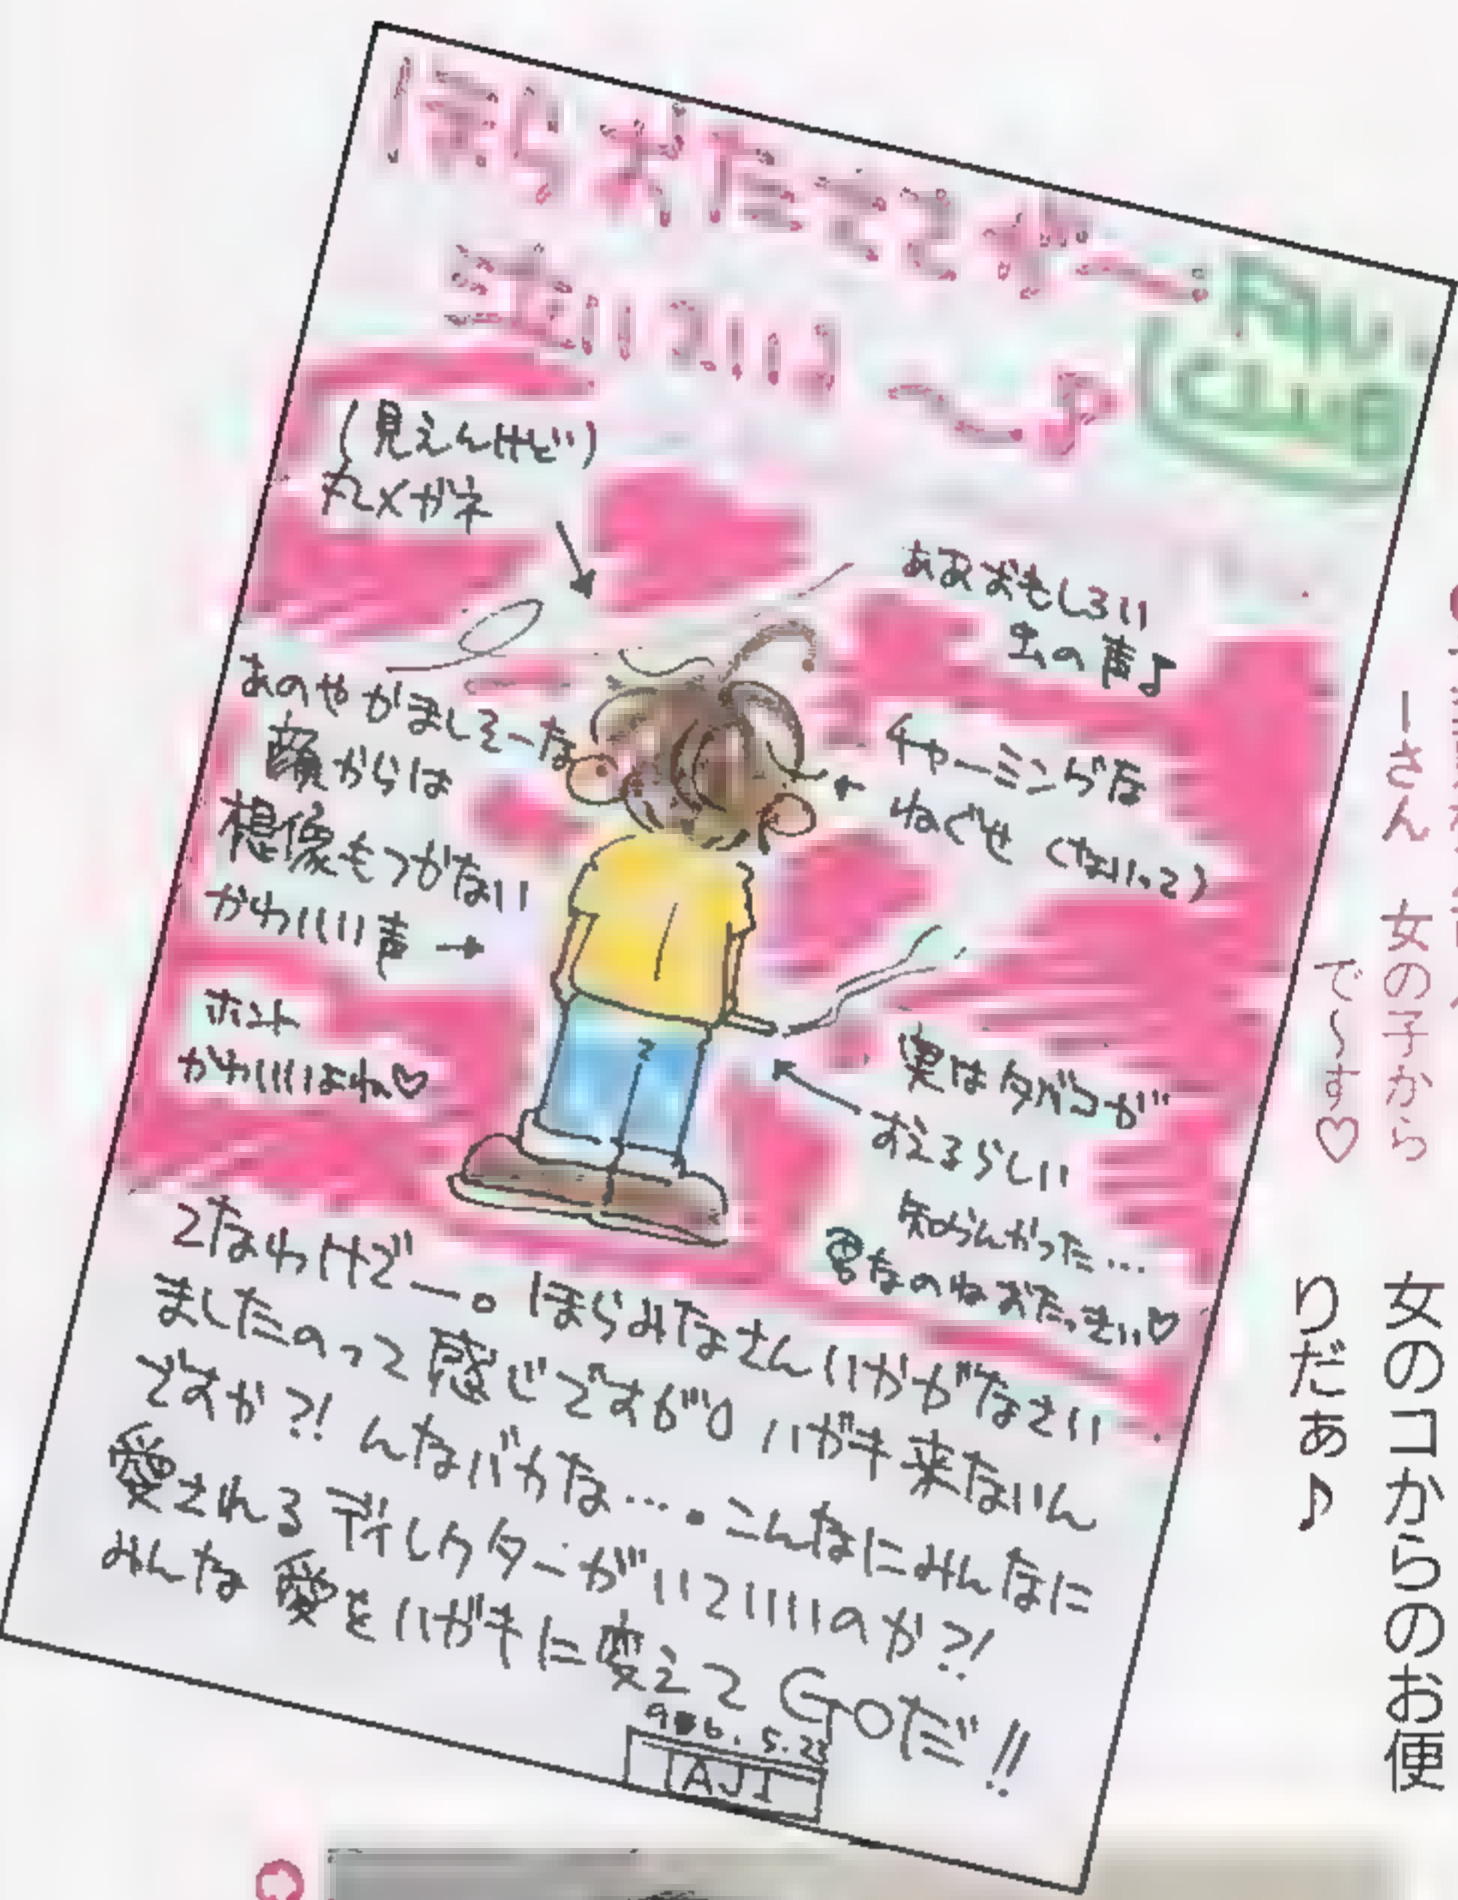 ほらおたっきー
FAN
CLUB
(見えんけど)
丸メガネ
ああおもしろい
虫の声♪
あのやかましそーな
顔からは
想像もつかない
かわいい声→
ホント
かわいいよね♡
←チャーミングな
ねぐせ(ないって)
実はタバコが
すえるらしい
知らんかった…
男なのねおたっきい♡
てなわけでー。ほらみなさんいかがなさい
ましたのって感じですが!ハガキ来ないん
ですか?!んなバカな…。こんなにみんなに
愛されるディレクターがいていいのか?!
みんな愛をハガキに変えてGOだ!!
5.23
TAJI
ーさん 女の子から
で〜す♡
女のコからのお便
りだぁ♪